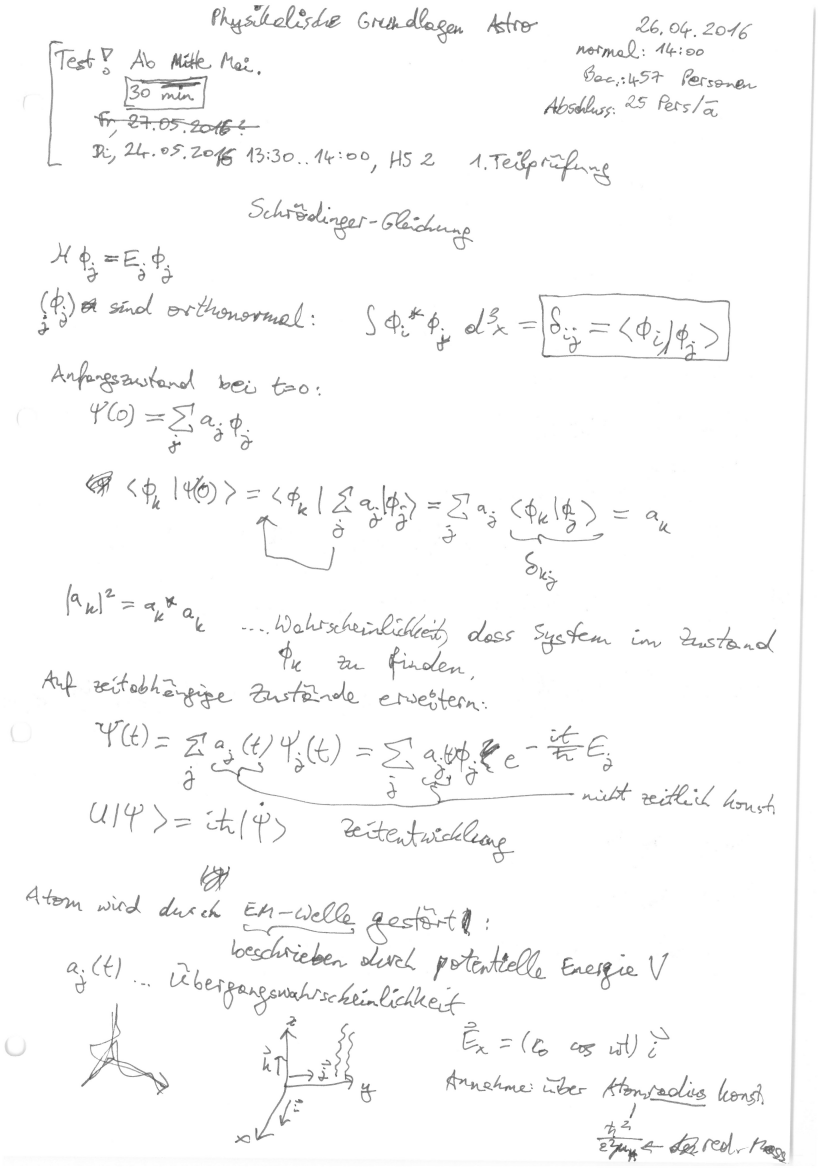 Physikalische Grundlagen Astro
26.04.2016
normal: 14:00
Bac.: 457 Personen
Abschluss: 25 Pers/a
Test! Ab Mitte Mai.
30 min
Fr, 27.05.2016?
Di, 24.05.2016 13:30..14:00, HS 2 1. Teilprüfung
Schrödinger-Gleichung
H ϕ_j = E_j ϕ_j
(ϕ_j)_j sind orthonormal: ∫ ϕ_i* ϕ_j d³x = δ_ij = ⟨ϕ_i|ϕ_j⟩
Anfangszustand bei t=0:
Ψ(0) = Σ_j a_j ϕ_j
⟨ϕ_k |Ψ(0)⟩ = ⟨ϕ_k | Σ_j a_j |ϕ_j⟩ = Σ_j a_j ⟨ϕ_k|ϕ_j⟩ = a_k
δ_kj
|a_k|² = a_k* a_k .... Wahrscheinlichkeit, dass System im Zustand
ϕ_k zu finden.
Auf zeitabhängige Zustände erweitern:
Ψ(t) = Σ_j a_j(t) Ψ_j(t) = Σ_j a_j(t) ϕ_j e^{-it/ħ E_j}
nicht zeitlich konst.
H|Ψ⟩ = iħ|Ψ̇⟩ Zeitentwicklung
Atom wird durch EM-Welle gestört:
beschrieben durch potentielle Energie V
a_j(t) ... Übergangswahrscheinlichkeit
z
k⃗
j⃗
y
i⃗
x
E⃗_x = (ε_0 cos ωt) i⃗
Annahme: über Atomradius konst.
ħ²/e²μ ← red. Mass